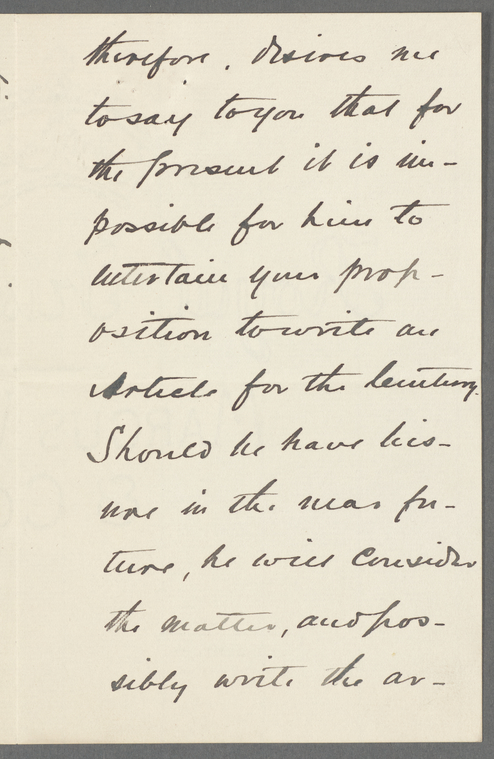 therefore, desires me
to say to you that for
the present it is im-
possible for him to
entertain your prop-
osition to write an
Article for the Century.
Should he have leis-
ure in the near fu-
ture, he will consider
the matter, and pos-
sibly write the ar-